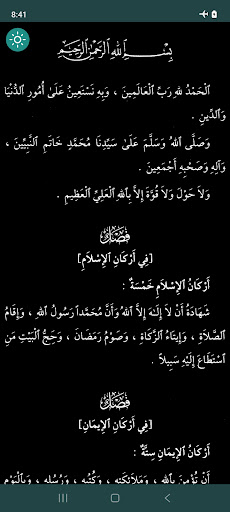 8:41
بِسْمِ اللهِ الرَّحْمٰنِ الرَّحِيْمِ
الْحَمْدُ للهِ رَبِّ الْعَالَمِينَ ، وَبِهِ نَسْتَعِينُ عَلَىٰ أُمُورِ الدُّنْيَا
وَالدِّينِ .
وَصَلَّى اللهُ وَسَلَّمَ عَلَىٰ سَيِّدِنَا مُحَمَّدٍ خَاتَمِ النَّبِيِّينَ ،
وَآلِهِ وَصَحْبِهِ أَجْمَعِينَ .
وَلَا حَوْلَ وَلَا قُوَّةَ إِلَّا بِاللهِ الْعَلِيِّ الْعَظِيمِ .
فَصْلٌ
[فِي أَرْكَانِ الْإِسْلَامِ]
أَرْكَانُ الْإِسْلَامِ خَمْسَةٌ :
شَهَادَةُ أَنْ لَا إِلَٰهَ إِلَّا اللهُ وَأَنَّ مُحَمَّداً رَسُولُ اللهِ ، وَإِقَامُ
الصَّلَاةِ ، وَإِيتَاءُ الزَّكَاةِ ، وَصَوْمُ رَمَضَانَ ، وَحَجُّ الْبَيْتِ مَنِ
اسْتَطَاعَ إِلَيْهِ سَبِيلاً .
فَصْلٌ
[فِي أَرْكَانِ الْإِيمَانِ]
أَرْكَانُ الْإِيمَانِ سِتَّةٌ :
أَنْ تُؤْمِنَ بِاللهِ ، وَمَلَائِكَتِهِ ، وَكُتُبِهِ ، وَرُسُلِهِ ، وَبِالْيَوْمِ